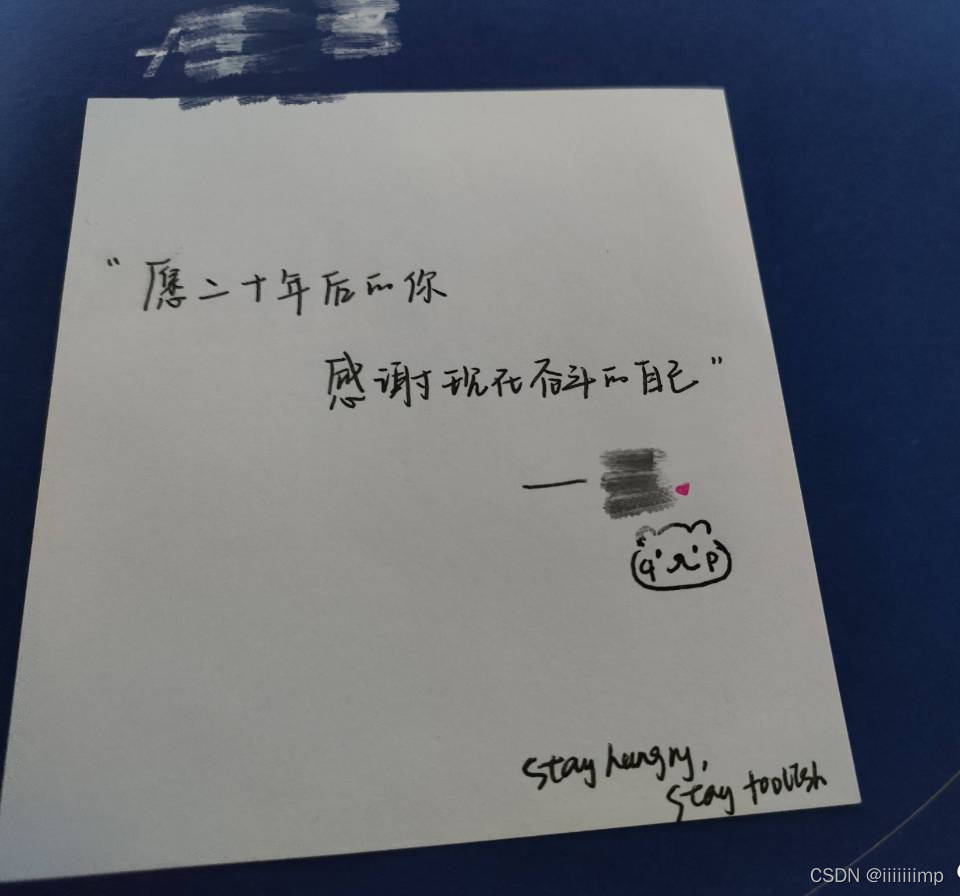 “愿二十年后的你
感谢现在奋斗的自己”
——
stay hungry,
stay foolish
CSDN @iiiiiiimp